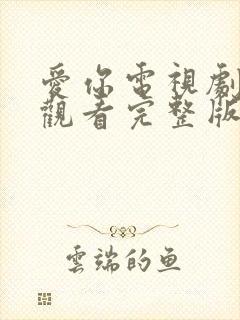 愛你電視劇
觀看完整版
雲端的鱼